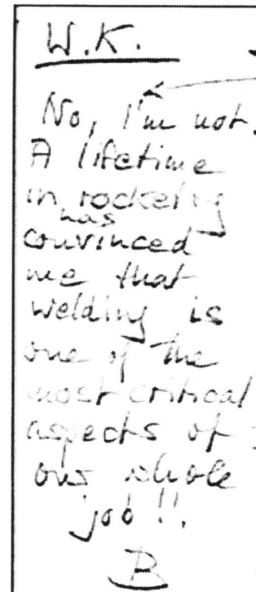 W.K.
No, I'm not.
A lifetime
in rocketry
has
convinced
me that
welding is
one of the
most critical
aspects of
our whole
job!!.
B